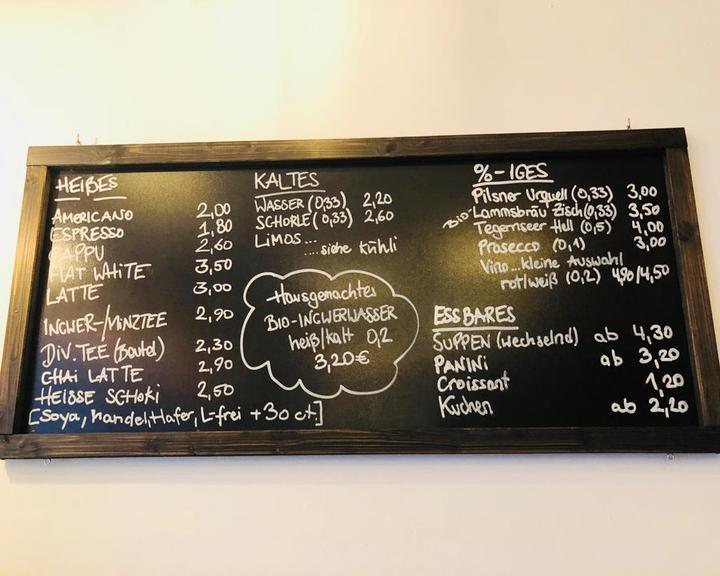 HEIßES
AMERICANO 2,00
ESPRESSO 1,80
CAPPU 2,60
FLAT WHITE 3,50
LATTE 3,00
INGWER-/MINZTEE 2,90
DIV. TEE (Beutel) 2,30
CHAI LATTE 2,90
HEISSE SCHOKI 2,60
[Soya, Mandel, Hafer, L-frei +30 ct.]
KALTES
WASSER (0,33) 2,20
SCHORLE (0,33) 2,60
LIMOS...
....siehe Kühli
Hausgemachtes
BIO-INGWERWASSER
heiß/kalt 0,2
3,20€
%-IGES
Pilsner Urquell (0,33) 3,00
Bio Lammsbräu Zisch (0,33) 3,50
Tegernseer Hell (0,5) 4,00
Prosecco (0,1) 3,00
Vino...kleine Auswahl
rot/weiß (0,2) 4,90/4,50
ESSBARES
SUPPEN (wechselnd) ab 4,30
PANINI ab 3,20
Croissant 1,20
Kuchen ab 2,20